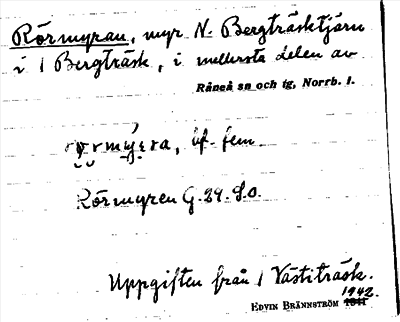 Rörmyran, myr N. Bergträsktjärn
i 1 Bergträsk, i mellersta delen av
Råneå sn och tg, Norrb. l.
bf. fem.
Rörmyren G. 29. S.o.
Uppgiften från 1 Västiträsk.
1942.
EDVIN BRÄNNSTRÖM 1941